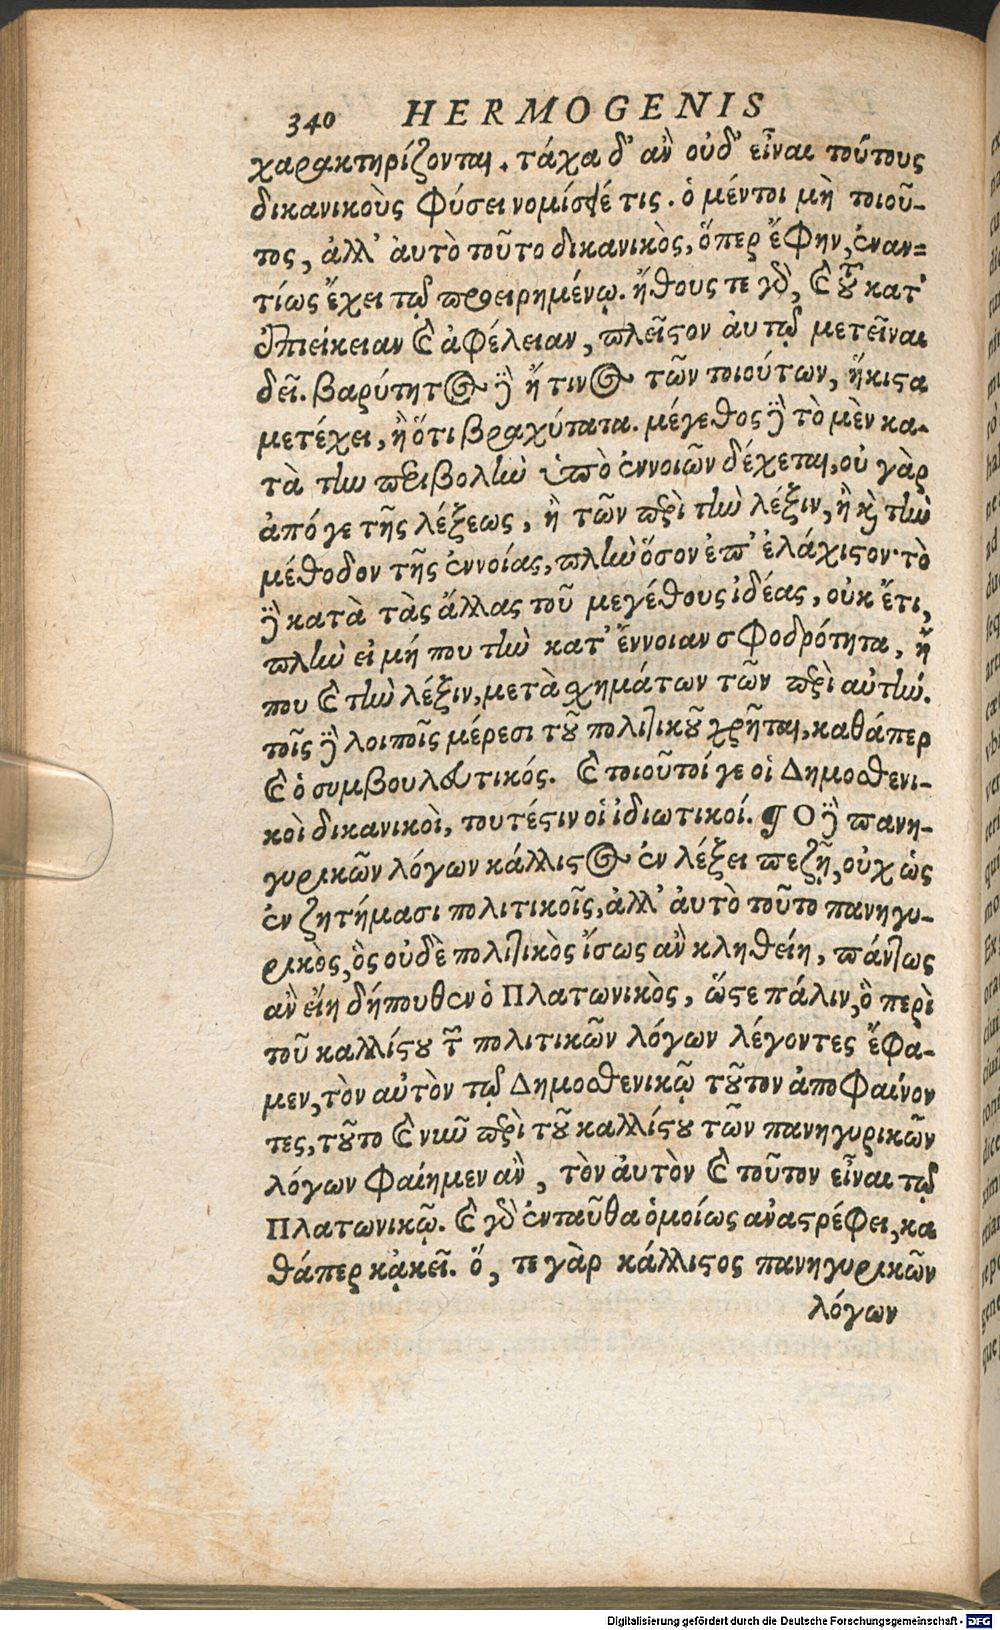 340 HERMOGENIS
χαρακτηρίζονται. τάχα δ᾽ ἂν οὐδ᾽ εἶναι τούτους
δικανικοὺς φύσει νομίσειέ τις. ὁ μέντοι μὴ τοιοῦ-
τος, ἀλλ᾽ ἀυτὸ τοῦτο δικανικὸς, ὅπερ ἔφην, ἐναν=
τίως ἔχει τῷ προειρημένῳ. ἤθους τε γδ, καὶ τοῦ κατ᾽
ἐπιείκειαν καὶ ἀφέλειαν, πλεῖστον ἀυτῷ μετεῖναι
δεῖ. βαρύτητος δὲ ἤ τινος τῶν τοιούτων, ἥκιστα
μετέχει, ἢ ὅτι βραχύτατα. μέγεθος δὲ τὸ μὲν κα-
τὰ τὴν περιβολὴν ὑπὸ ἐννοιῶν δέχεται, οὐ γὰρ
ἀπό γε τῆς λέξεως, ἢ τῶν περὶ τὴν λέξιν, ἢ καὶ τὴν
μέθοδον τῆς ἐννοίας, πλὴν ὅσον ἐπ᾽ ἐλάχιστον· τὸ
δὲ κατὰ τὰς ἄλλας τοῦ μεγέθους ἰδέας, οὐκ ἔτι,
πλὴν εἰ μή που τὴν κατ᾽ ἔννοιαν σφοδρότητα, ἤ
που καὶ τὴν λέξιν, μετὰ σχημάτων τῶν περὶ αὐτήν.
τοῖς δὲ λοιποῖς μέρεσι τοῦ πολιτικοῦ χρῆται, καθάπερ
καὶ ὁ συμβουλευτικός. καὶ τοιοῦτοί γε οἱ Δημοσθενι-
κοὶ δικανικοὶ, τουτέστιν οἱ ἰδιωτικοί. ¶ Ο δὲ πανη-
γυρικῶν λόγων κάλλιστος ἐν λέξει πεζῇ, οὐχ ὡς
ἐν ζητήμασι πολιτικοῖς, ἀλλ᾽ ἀυτὸ τοῦτο πανηγυ-
ρικὸς, ὃς οὐδὲ πολιτικὸς ἴσως ἂν κληθείη, πάντως
ἂν εἴη δήπουθεν ὁ Πλατωνικὸς, ὥστε πάλιν, ὃ περὶ
τοῦ καλλίστου τῶν πολιτικῶν λόγων λέγοντες ἔφα-
μεν, τὸν αὐτὸν τῷ Δημοσθενικῷ τοῦτον ἀποφαίνον
τες, τοῦτο καὶ νῦν περὶ τοῦ καλλίστου τῶν πανηγυρικῶν
λόγων φαίημεν ἂν, τὸν ἀυτὸν καὶ τοῦτον εἶναι τῷ
Πλατωνικῷ. καὶ γδ ἐνταῦθα ὁμοίως ἀναστρέφει, κα
θάπερ κᾀκεῖ. ὅ, τε γὰρ κάλλιστος πανηγυρικῶν
λόγων
Digitalisierung gefördert durch die Deutsche Forschungsgemeinschaft - DFG